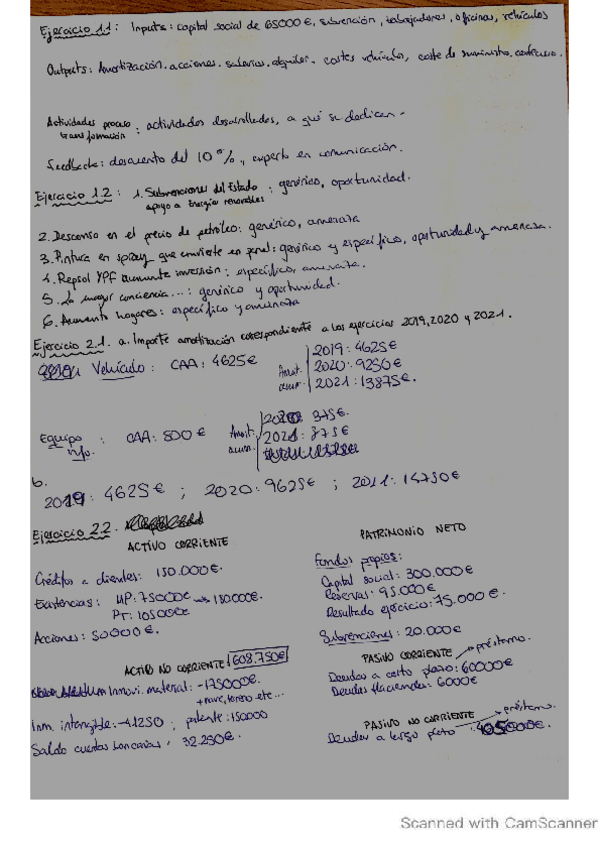 Ejercicio 1.1: Inputs: capital social de 65000 €, subvención, trabajadores, oficinas, vehículos
Outputs: Amortización. acciones. salarios. alquiler. costes vehículos, coste de suministro.
Actividades proceso transformación: actividades desarrolladas, a qué se dedican.
Feedbacks: descuento del 10%, experto en comunicación.
Ejercicio 1.2: 1. Subvenciones del Estado apoyo a Energías renovables: genérico, oportunidad.
2. Descenso en el precio de petróleo: genérico, amenaza
3. Pintura en spray que convierte en panel: genérico y específico, oportunidad y amenaza.
4. Repsol YPF aumenta inversión: específico, amenaza.
5. La mayor conciencia...: genérico y oportunidad.
6. Aumento hogares: específico y amenaza
Ejercicio 2.1. a. Importe amortización correspondiente a los ejercicios 2019, 2020 y 2021.
Vehículo: CAA: 4625 €
Amort. acum.
2019: 4625 €
2020: 9250 €
2021: 13875 €.
Equipo info.: CAA: 500 €
Amort. acum.
2020: 375 €.
2021: 875 €.
b.
2019: 4625 €; 2020: 9625 €; 2021: 14750 €
Ejercicio 2.2.
ACTIVO CORRIENTE
Créditos a clientes: 150.000 €.
Existencias: MP: 75000 € → 180000 €.
PT: 105000 €
Acciones: 50000 €.
ACTIVO NO CORRIENTE 608.750 €
Inmovi. material: -175000 €.
+ nave, terreno etc...
Inm. intangible: -41250; patente: 150000
Saldo cuentas bancarias: 32.250 €.
PATRIMONIO NETO
Fondos propios:
Capital social: 300.000 €
Reservas: 95.000 €.
Resultado ejercicio: 75.000 €.
Subvenciones: 20.000 €
PASIVO CORRIENTE → préstamo.
Deudas a corto plazo: 60000 €
Deudas Hacienda: 6000 €
PASIVO NO CORRIENTE → préstamo.
Deudas a largo plazo: 405000 €.
Scanned with CamScanner